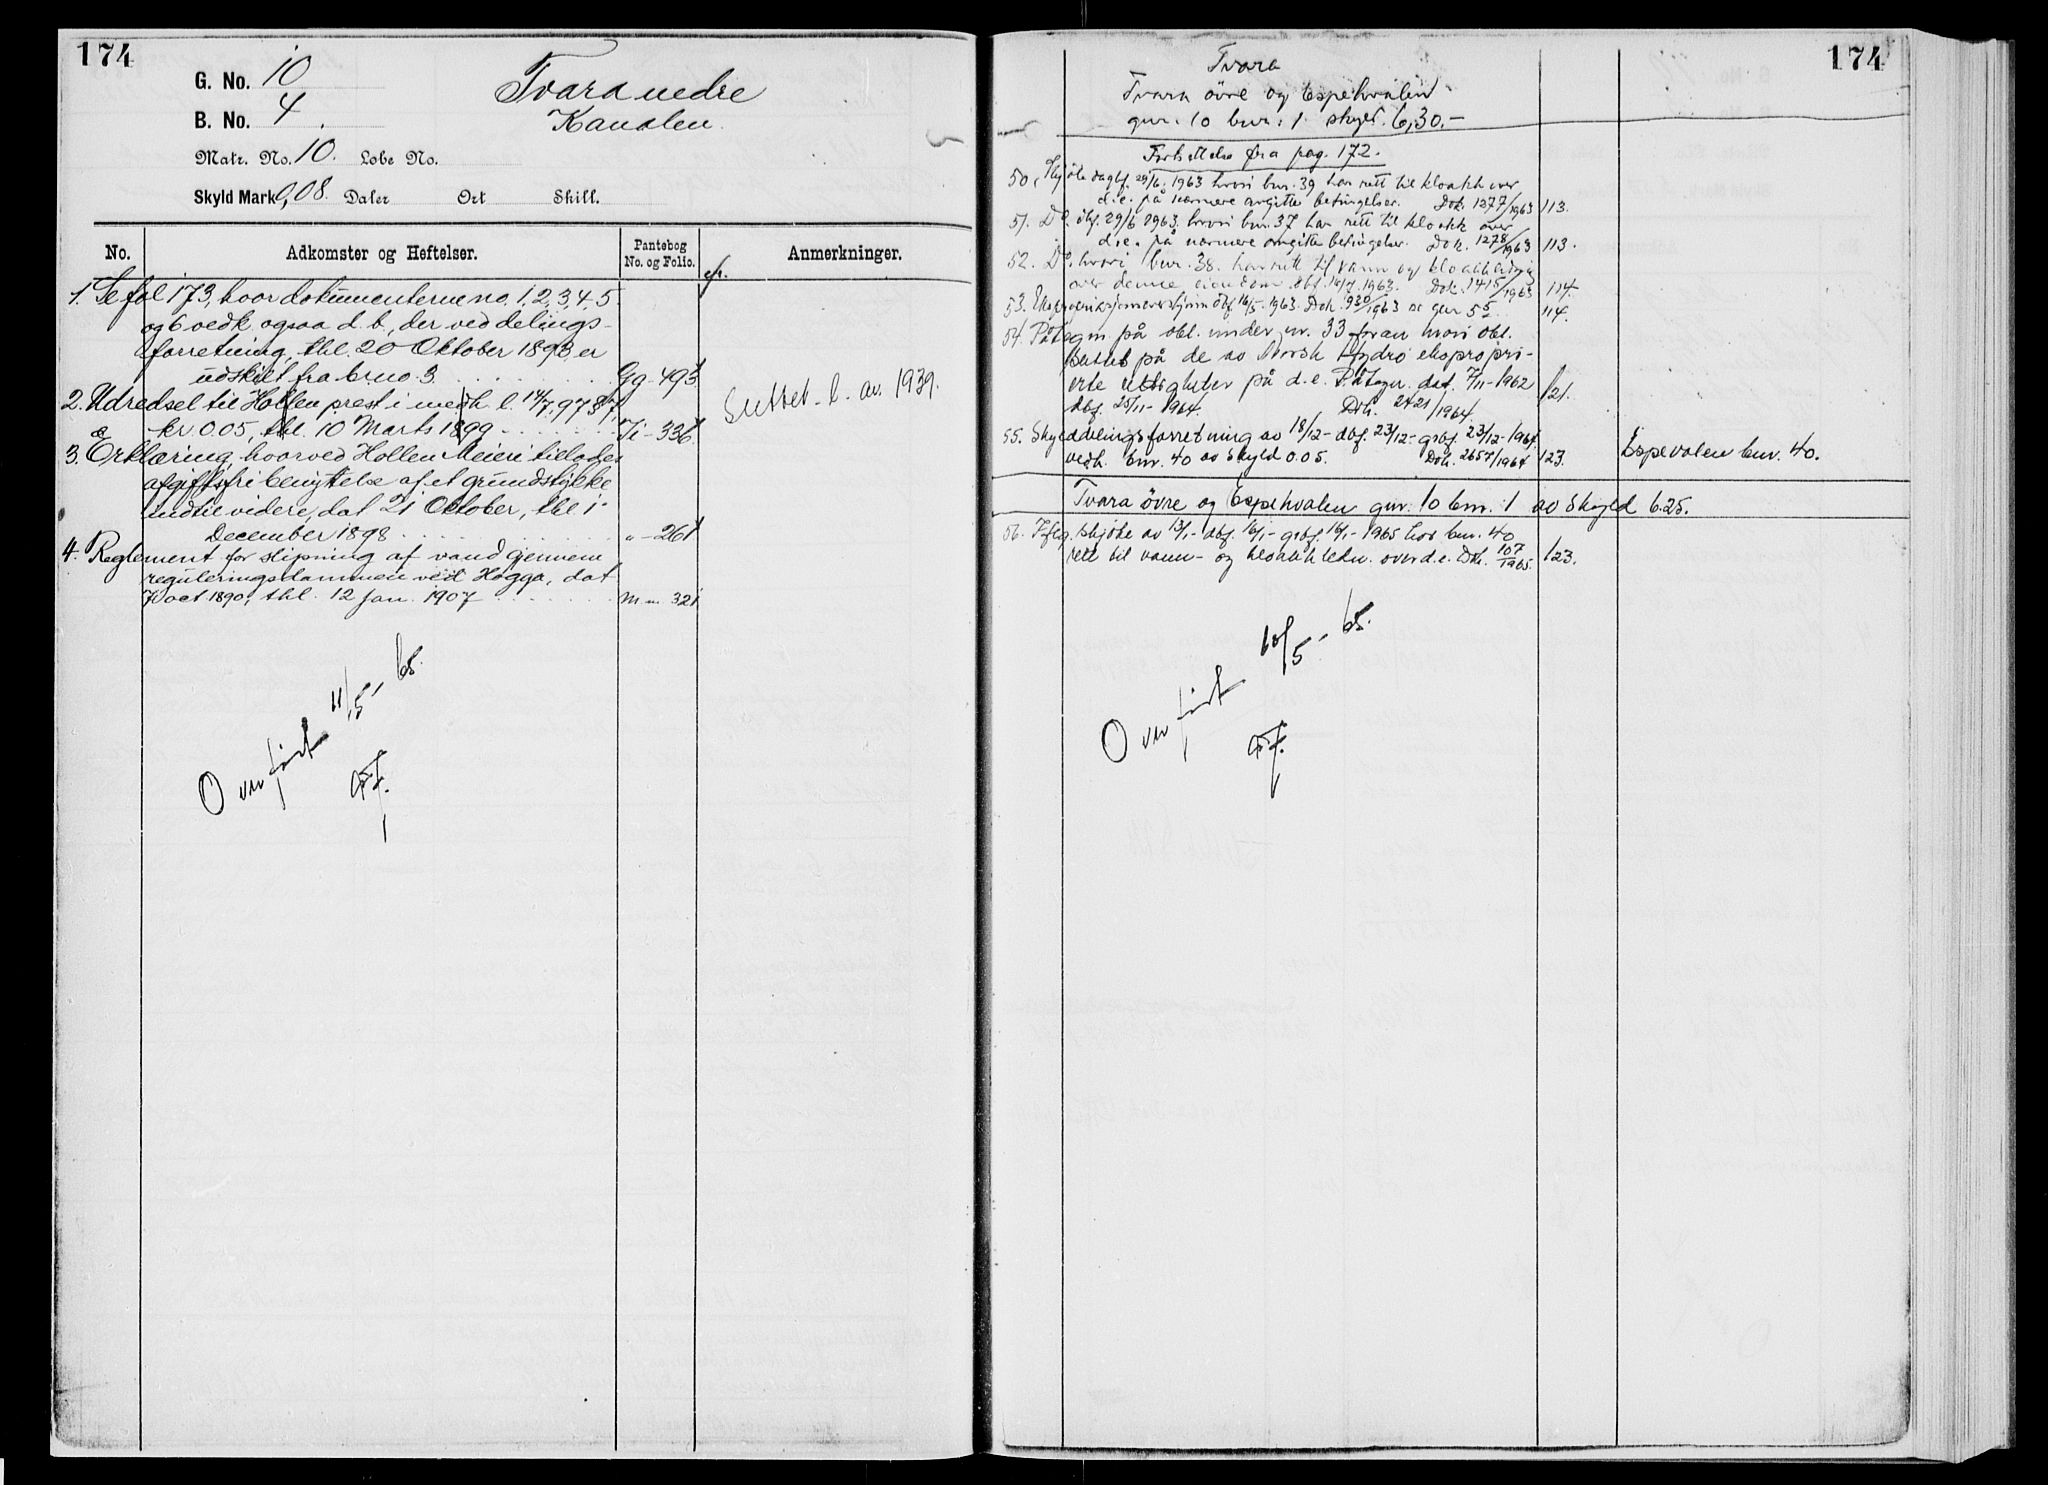 174
G. No. 10
B. No. 4
Matr. No. 10. Løbe No.
Skyld Mark 0,08. Daler Ort Skill.
Tvara nedre
Kanalen.
No.
Adkomster og Heftelser.
Pantebog
No. og Folio.
cfr.
Anmerkninger.
1. Se fol 173, hvor dokumenterne no. 1, 2, 3, 4, 5
og 6 vedk. ogsaa d. b., der ved delings-
forretning, thl. 20 Oktober 1893 er
udskilt fra br no. 3. Gg - 493
2. Udredsel til Hollen prest i medh. l. 14/7, 97 § 7
kr. 0.05, thl. 10 Marts 1899 Ii - 336
Slettet l. av 1939.
3. Erklæring, hvorved Hollen Meieri tillades
afgiftsfri benyttelse af et grundstykke
indtil videre, dat 21 Oktober, thl 1.
December 1898 " - 261
4. Reglement for slipning af vand gjennem
reguleringsdammen ved Hogga, dat
7 oct. 1890, thl. 12 jan. 1907 M m 321
Overført 11/5 - 65.
174
Tvara
Tvara övre og Espehvalen
gnr. 10 bnr. 1 skyld. 6,30.-
Fortsettelse fra pag. 172.
50. Skjöte dagbf. 29/6 1963 hvori bnr. 39 har rett til kloakk over
d.e. på nærmere angitte betingelser. Dok. 1277/1963 113.
51. Do. dbf. 29/6 1963 hvori bnr. 37 har rett til kloakk over
d.e. på nærmere angitte betingelser. Dok. 1278/1963 113.
52. Do. hvori bnr. 38. har rett til vann og kloakkledning
over denne eiendom. dbf. 16/7. 1963. Dok. 1415/1963 114.
53. Ekspropriasjonsskjønn dbf 16/5. 1963. Dok. 930/1963 se gnr 55 114.
54. Påtegn på obl. under nr. 33 foran hvori obl.
slettet på de av Norsk Hydro ekspropri-
erte rettigheter på d.e. Påtegn. dat. 7/11 - 1962
dbf. 25/11 - 1964. Dok. 2421/1964 121.
55. Skylddelingsforretning av 18/12 - dbf. 23/12 - grbf. 23/12 - 1964
vedk. bnr. 40 av skyld 0.05. Dok. 2657/1964 123. Espevalen bnr. 40.
Tvara övre og Espehvalen gnr. 10 bnr. 1 av Skyld 6.25.
56. Iflg. skjöte av 13/1 - dbf. 16/1 - grbf. 16/1 - 1965 har bnr. 40
rett til vann- og kloakkledn. over d.e. Dok. 107/1965. 123.
Overført 10/5 - 65.